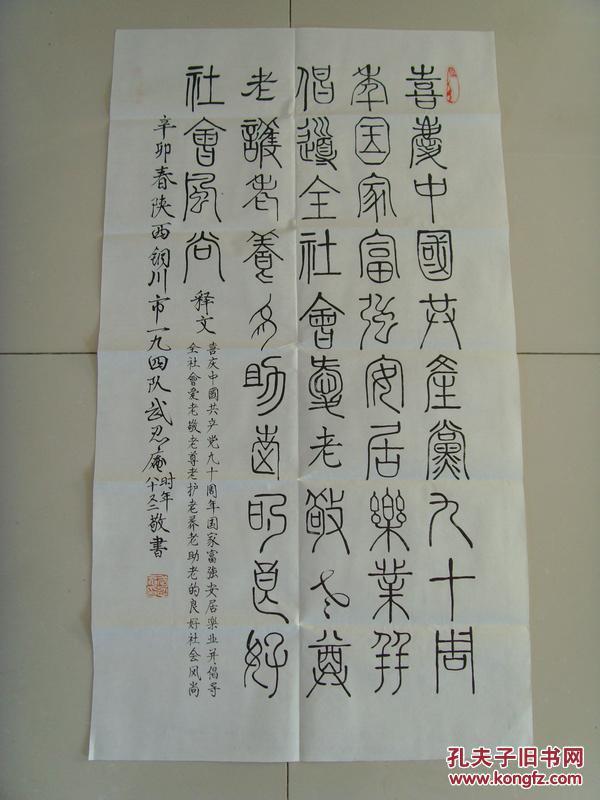 喜慶中國共產黨九十周
年国家富强安居樂業并
倡導全社會愛老敬老尊
老護老養老助老的良好
社會風尚
释文
喜庆中國共产党九十周年国家富強安居樂业并倡导
全社會爱老敬老尊老护老养老助老的良好社会风尚
辛卯春陕西铜川市一九四队武忍庵时年八十又二敬書
孔夫子旧书网
www.kongfz.com